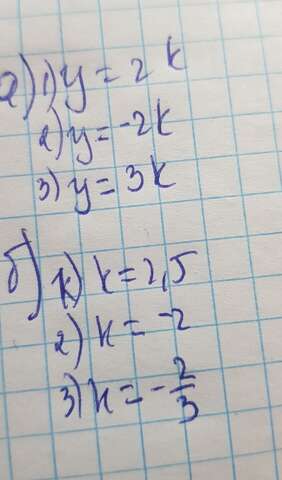 а) 1) y = 2k
2) y = -2k
3) y = 3k
б) 1) k = 2,5
2) k = -2
3) k = -2/3